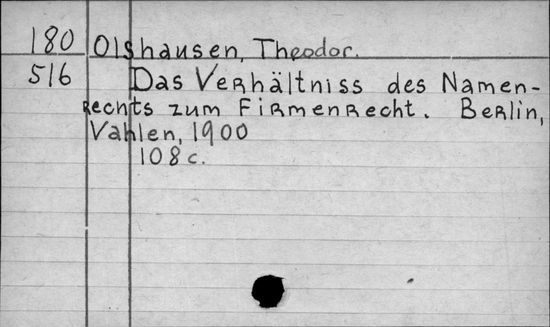 180 Olshausen, Theodor.
516 Das Verhältniss des Namen-
rechts zum Firmenrecht. Berlin,
Vahlen, 1900
108 c.